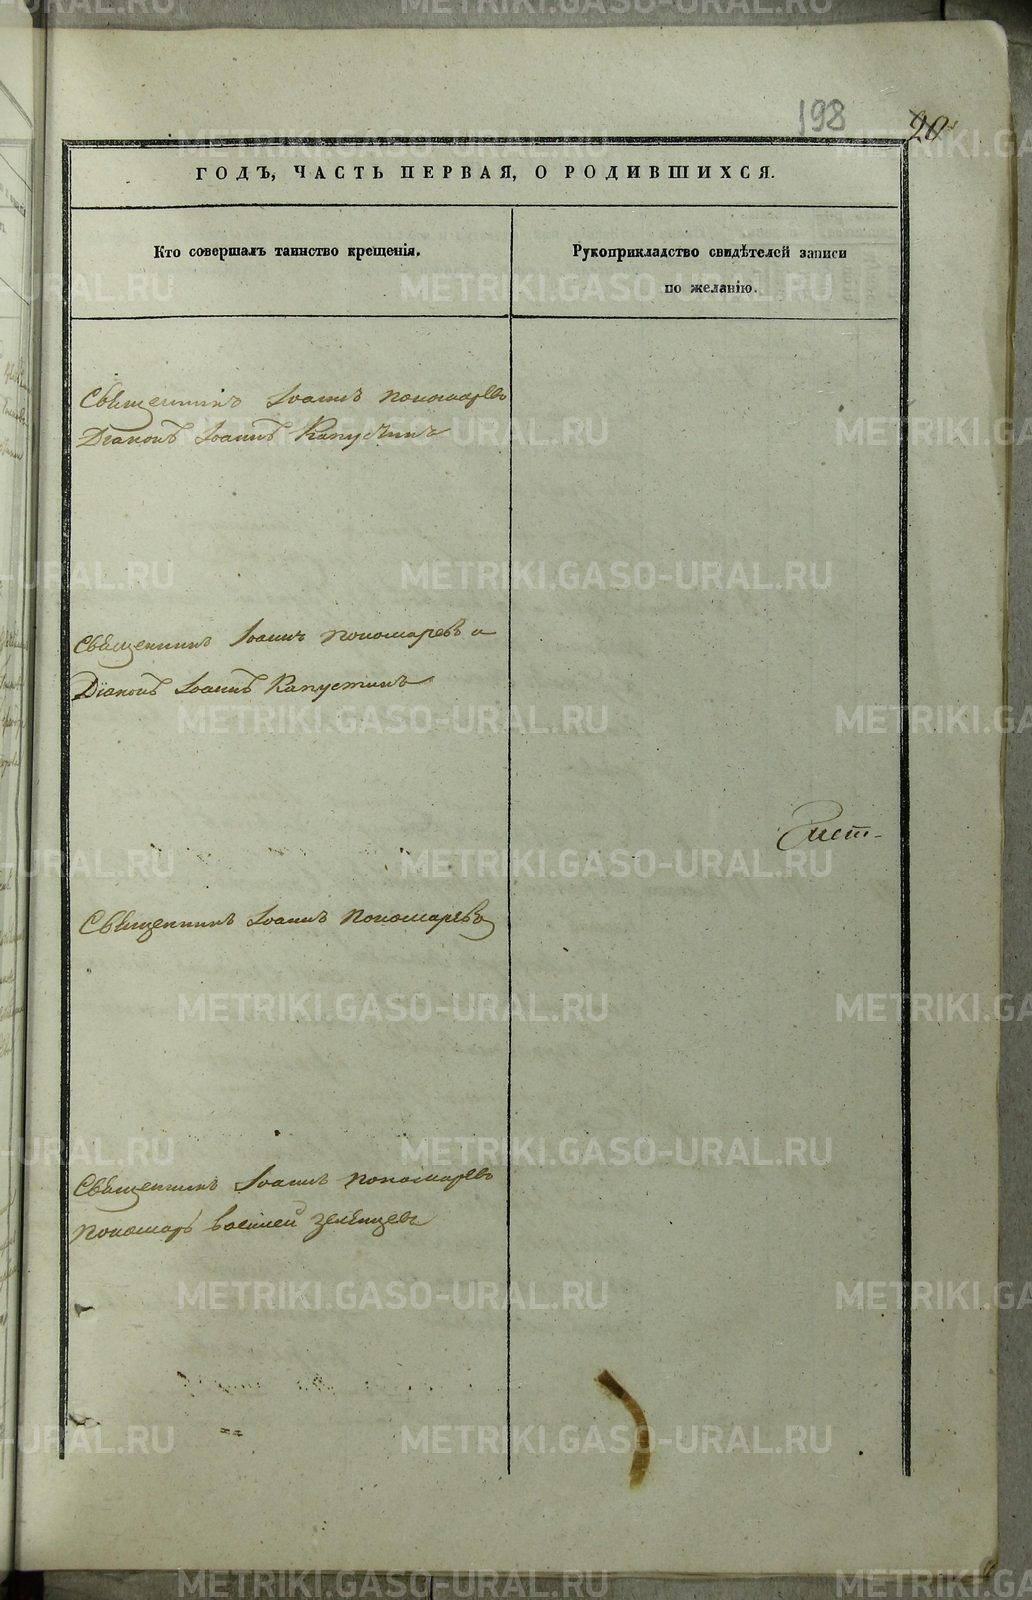 198
20
ГОДЪ, ЧАСТЬ ПЕРВАЯ, О РОДИВШИХСЯ.
Кто совершалъ таинство крещенія.
Рукоприкладство свидѣтелей записи
по желанію.
Священникъ Іоаннъ Пономаревъ
Діаконъ Іоаннъ Капустинъ
Священникъ Іоаннъ Пономаревъ и
Діаконъ Іоаннъ Капустинъ
Священникъ Іоаннъ Пономаревъ
Священникъ Іоаннъ Пономаревъ
Пономарь Василей Зеленцевъ
METRIKI.GASO-URAL.RU